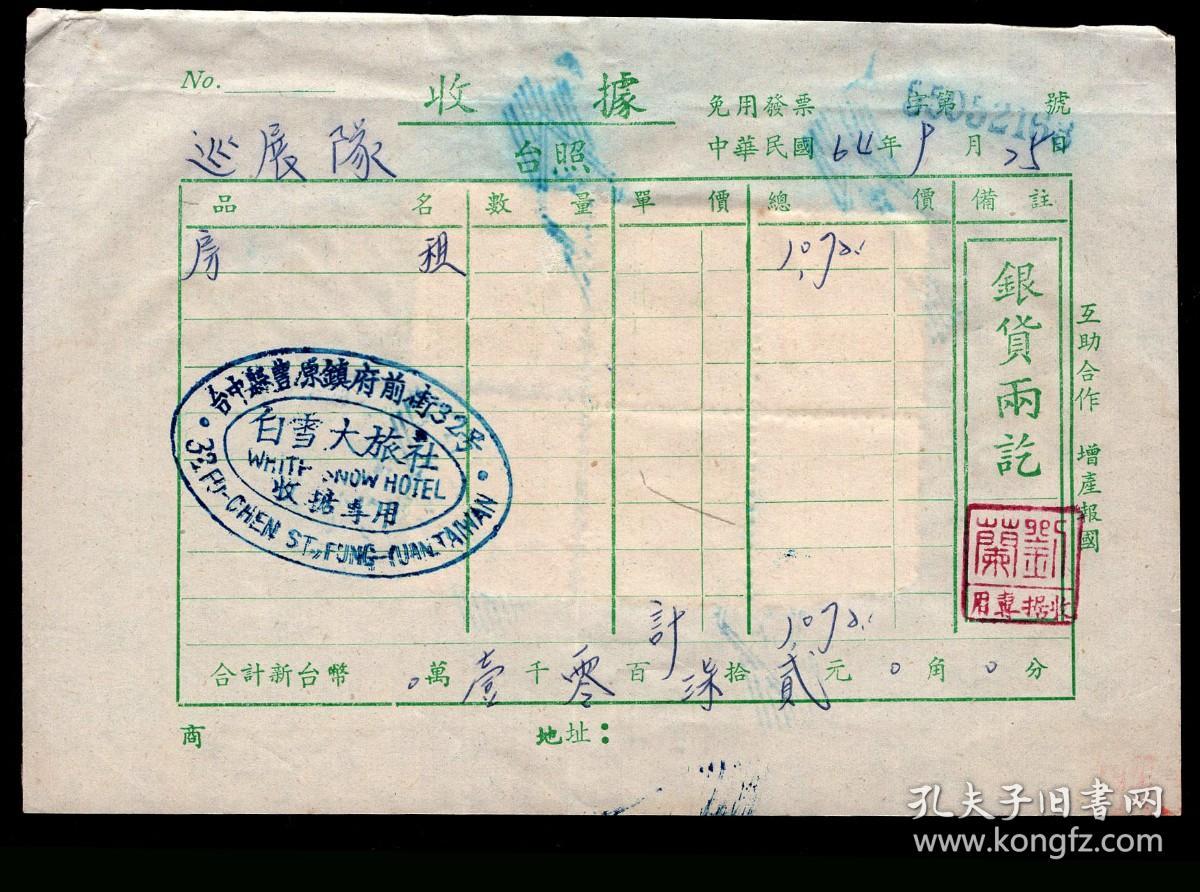 No.
收據
免用發票 字第 號
巡展隊 台照
中華民國64年9月25日
品名 數量 單價 總價 備註
房租 1,072.
銀貨兩訖
互助合作 增產報國
台中縣豐原鎮府前街32号
白雪大旅社
WHITE SNOW HOTEL
收據專用
32, FU-CHEN ST., FUNG-YUAN, TAIWAN
劉蘭
收据專用
計 1,072.
合計新台幣 0萬壹千零百柒拾貳元0角0分
商 地址：
孔夫子旧书网
www.kongfz.com